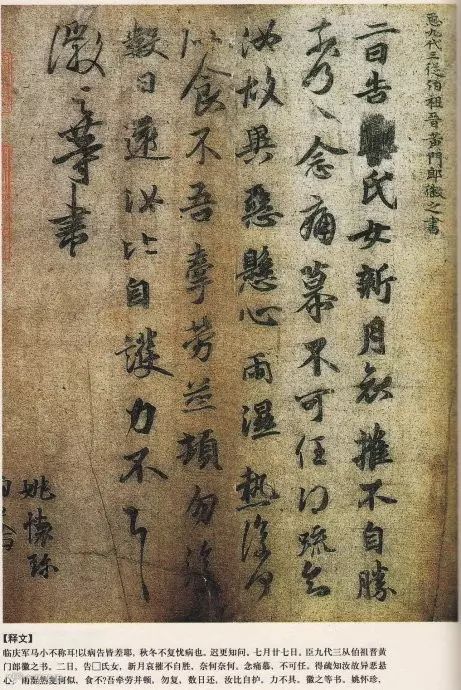 臣九代三從伯祖晉黃門郎徽之書
二日告氏女新月哀摧不自勝
奈何〻念痛慕不可任得疏知
汝故異惡懸心雨濕熱復何
似食不吾牽勞並頓勿復
數日還汝比自護力不具
徽之等書
姚懷珍
【释文】
临庆军马小不称耳!以病告皆差耶,秋冬不复忧病也。迟更知问。七月廿七日。臣九代三从伯祖晋黄
门郎徽之书。二日,告□氏女,新月哀摧不自胜,奈何奈何。念痛慕,不可任。得疏知汝故异恶悬
心,雨湿热复何似,食不?吾牵劳并顿,勿复,数日还,汝比自护,力不具。徽之等书。姚怀珍、